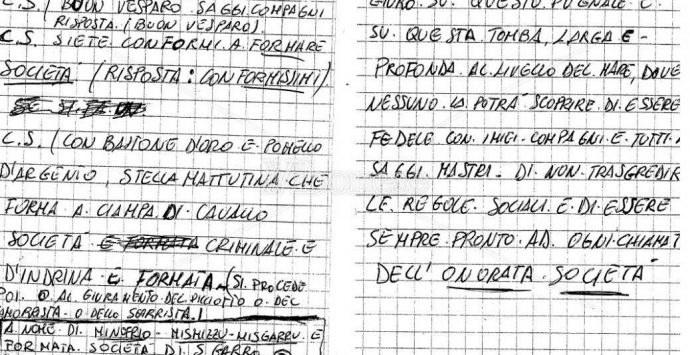 C.S. / BUON VESPARO SAGGI COMPAGNI
RISPOSTA. (BUON VESPARO).
C.S. SIETE CONFORMI A FORMARE
SOCIETÀ (RISPOSTA: CONFORMISSIMI)
C.S. / CON BASTONE D'ORO E POMELLO
D'ARGENIO, STELLA MATTUTINA CHE
FORMA A CIAMPA DI CAVALLO
SOCIETÀ E FORMATA CRIMINALE E
D'INDRINA E FORMATA (SI PROCEDE
POI O AL GIURAMENTO DEL PICCIOTTO O DEL
CAMORRISTA O DELLO SGARRISTA.)
A NOME DI MINOFRIO - MISMIZZU - MISGARRU E
FORMATA SOCIETÀ DI SGARRO
GIURO SU QUESTO PUGNALE E
SU QUESTA TOMBA, LARGA E -
PROFONDA AL LIVELLO DEL MARE, DOVE
NESSUNO LA POTRÀ SCOPRIRE DI ESSERE
FEDELE CON I MIEI COMPAGNI E TUTTI
SAGGI MASTRI - DI NON TRASGREDIR
LE REGOLE SOCIALI E DI ESSERE
SEMPRE PRONTO AD OGNI CHIAMAT
DELL'ONORATA SOCIETÀ